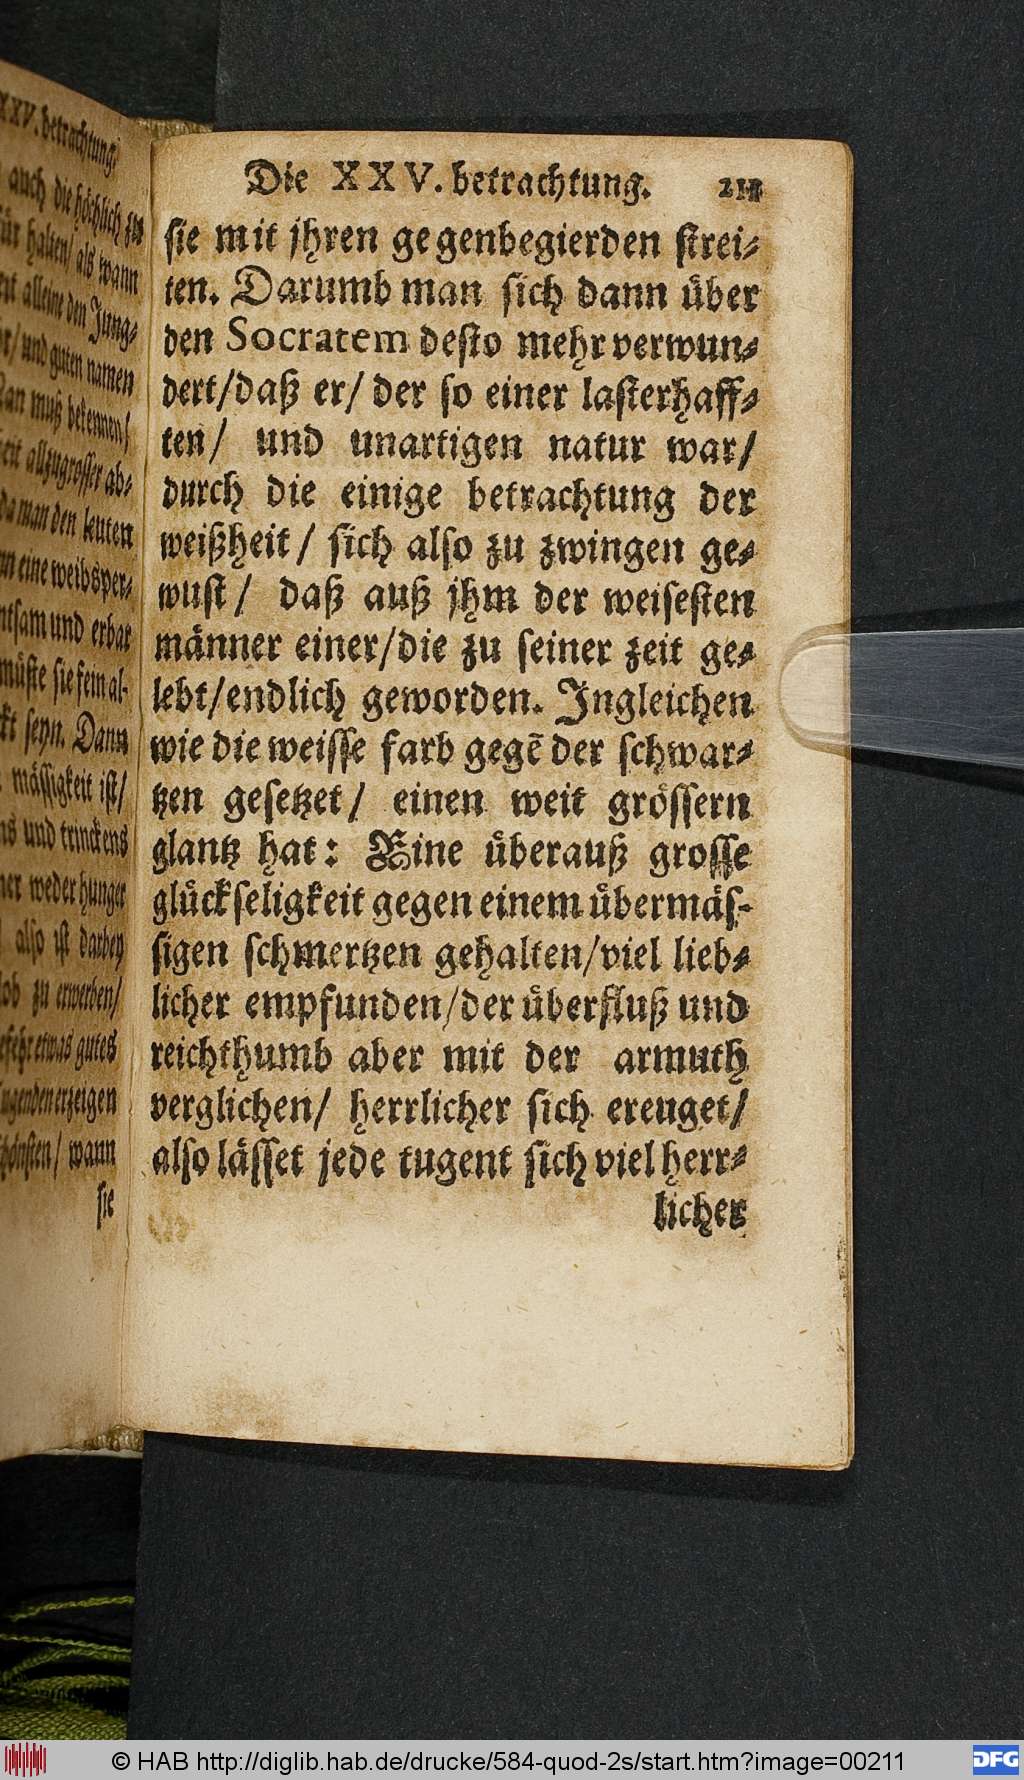 XXV. betrachtung.
auch die höchlich
für halten/ als wann
alleine den Jung-
und guten namen
muß bekennen/
allzugrosser ab-
da man den leuten
eine weibsper-
und erbar
müste sie fein al-
seyn. Dann
mässigkeit ist/
und trinckens
weder hunger
also ist darbey
lob zu erwerben/
etwas gutes
tugenden erzeigen
wann
sie
Die XXV. betrachtung. 211
sie mit jhren gegenbegierden strei-
ten. Darumb man sich dann über
den Socratem desto mehr verwun-
dert/daß er/ der so einer lasterhaff-
ten/ und unartigen natur war/
durch die einige betrachtung der
weißheit/ sich also zu zwingen ge-
wust/ daß auß jhm der weisesten
männer einer/die zu seiner zeit ge-
lebt/endlich geworden. Ingleichen
wie die weisse farb gegē der schwar-
tzen gesetzet/ einen weit grössern
glantz hat: Eine überauß grosse
glückseligkeit gegen einem übermäs-
sigen schmertzen gehalten/viel lieb-
licher empfunden/der überfluß und
reichthumb aber mit der armuth
verglichen/ herrlicher sich ereuget/
also lässet jede tugent sich viel herr-
licher
© HAB http://diglib.hab.de/drucke/584-quod-2s/start.htm?image=00211
DFG